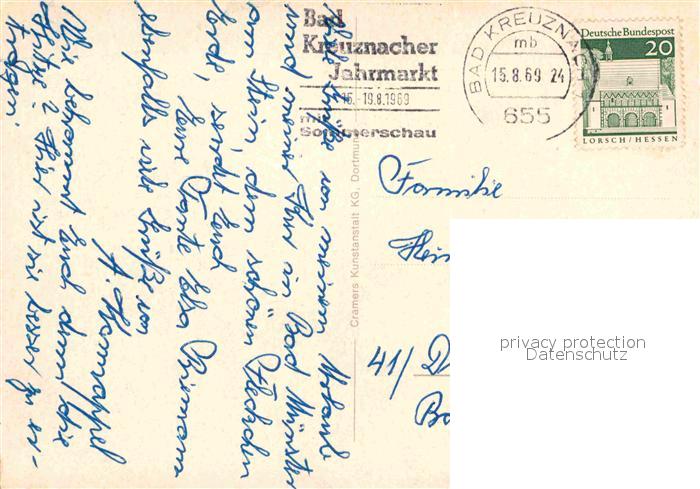 Bad
Kreuznacher
Jahrmarkt
15.-19.8.1969
mit
Sommerschau
BAD KREUZNACH
mb
15.8.69 24
655
Deutsche Bundespost
20
LORSCH/HESSEN
Viele Grüße von meinem Urlaub
und meiner Kur in Bad Münster
am Stein, dem schönen Fleckchen
Erde, sendet Euch
Eure Tante Elsa
ebenfalls viele Grüße von
A.
Wie bekommt Euch denn die
Hitze? Hier ist sie besser zu er-
tragen.
Cramers Kunstanstalt KG, Dortmund
Familie
Hein
41/ D
privacy protection
Datenschutz